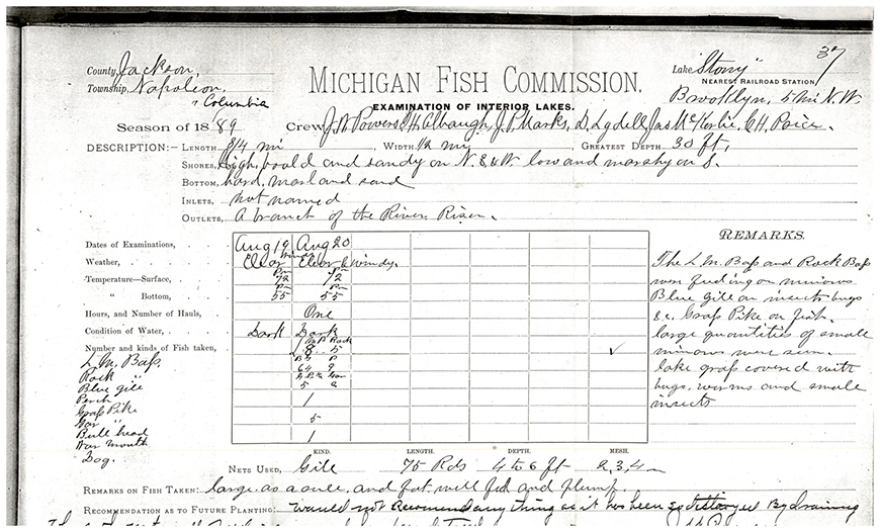 37
County, Jackson,
Township, Napoleon
& Columbia
MICHIGAN FISH COMMISSION.
EXAMINATION OF INTERIOR LAKES.
Lake "Stony"
NEAREST RAILROAD STATION,
Brooklyn, 5 mi N.W.
Season of 1889 Crew, J. N. Powers, H. Albaugh, J. P. Marks, D. Lydell, Jas McKerlie, C. H. Paice.
DESCRIPTION:— LENGTH 3/4 mi WIDTH 1/2 mi GREATEST DEPTH 30 ft,
SHORES, high, bould and sandy on N. & W. low and marshy on S.
BOTTOM, hard, marl and sand
INLETS, not named
OUTLETS, a branch of the River Risen.
Dates of Examinations, Aug 19 Aug 20
Weather, Clear windy Clear & windy.
Temperature—Surface, Pm 72 Pm 72
" Bottom, Pm 55 Pm 55
Hours, and Number of Hauls, One
Condition of Water, Dark Dark
Number and kinds of Fish taken,
L. M. Bass,
Rock "
Blue gill
Perch
Grass Pike
Gar "
Bull head
War mouth
Dog.
8 5
64 9
5 2
1
5
1
REMARKS.
The L. M. Bass and Rock Bass
were feeding on minows
Blue gill on insects bugs
&c. Grass Pike on fish.
large quantities of small
minows were seen.
lake grass covered with
bugs, worms and small
insects
KIND. LENGTH. DEPTH. MESH.
NETS USED, Gill 75 Rds 4 to 6 ft 2, 3, 4
REMARKS ON FISH TAKEN: large as a rule, and fat. well fed and plump.
RECOMMENDATION AS TO FUTURE PLANTING: would not recommend any thing as it has been so destroyed By draining